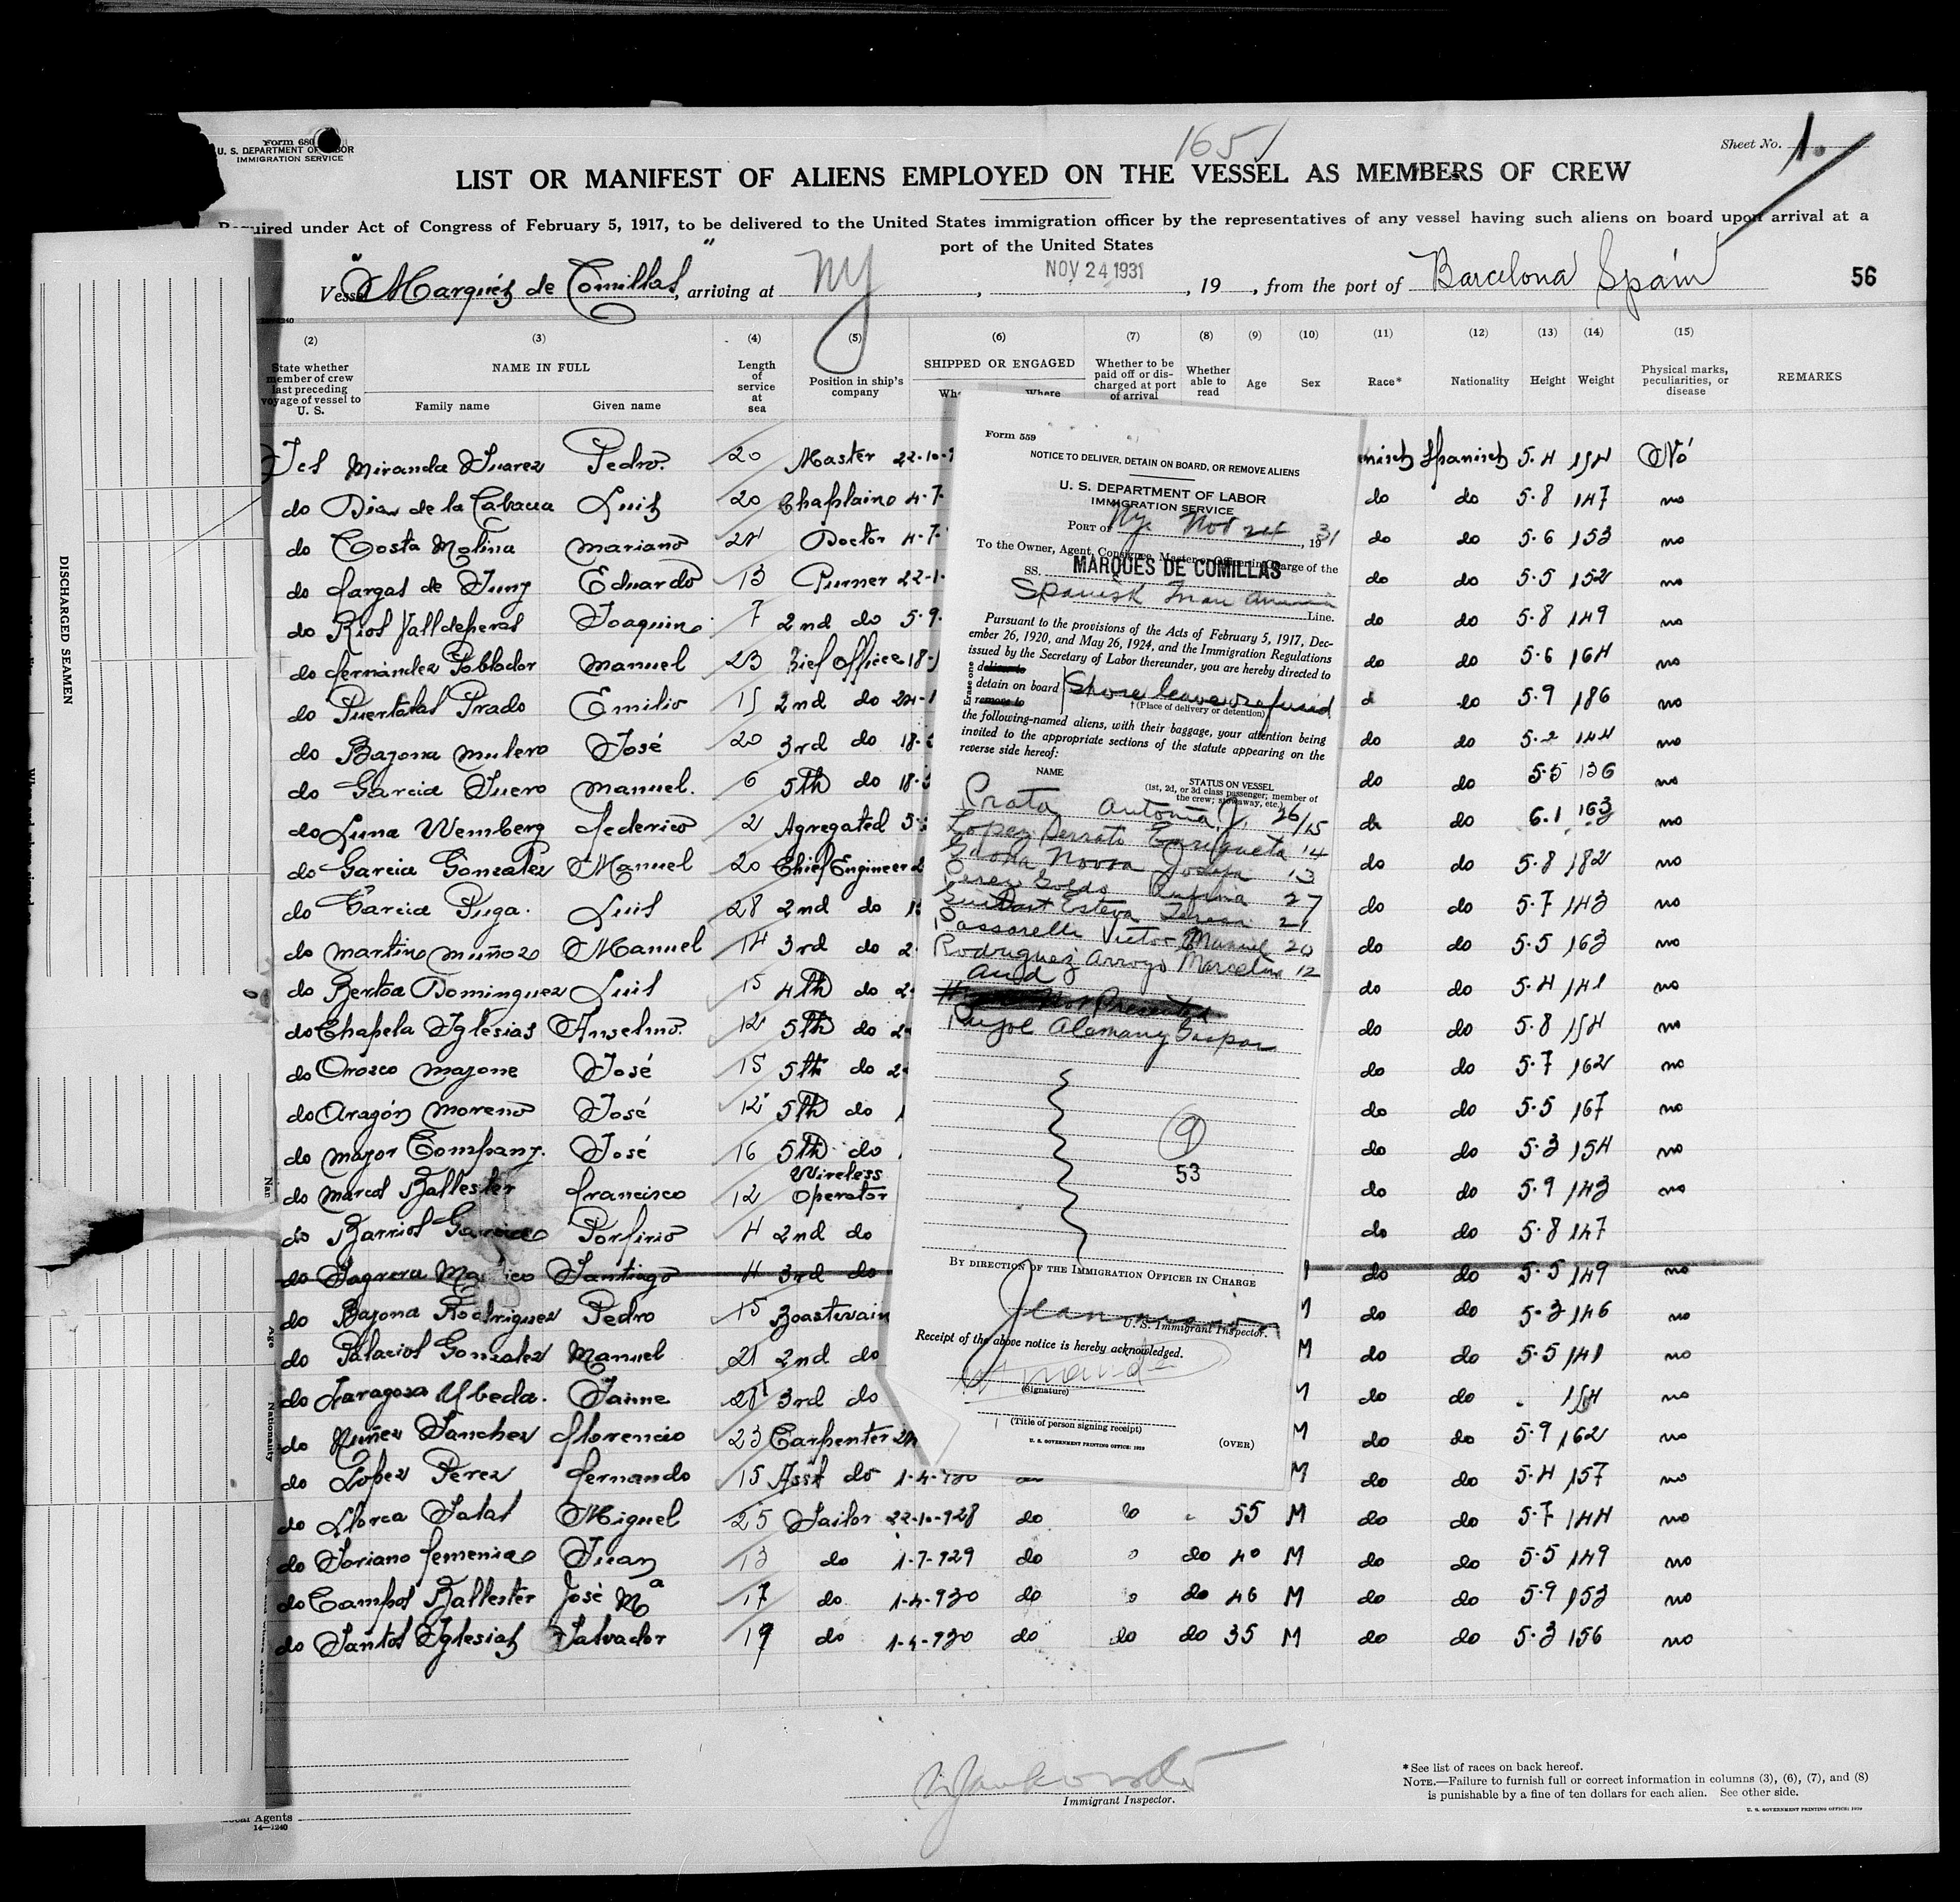 Form 680
U. S. DEPARTMENT OF LABOR
IMMIGRATION SERVICE
1651
Sheet No. 1.
LIST OR MANIFEST OF ALIENS EMPLOYED ON THE VESSEL AS MEMBERS OF CREW
Required under Act of Congress of February 5, 1917, to be delivered to the United States immigration officer by the representatives of any vessel having such aliens on board upon arrival at a
port of the United States
Vessel "Marqués de Comillas", arriving at NY, NOV 24 1931, 19 , from the port of Barcelona Spain
56
(2) (3) (4) (5) (6) (7) (8) (9) (10) (11) (12) (13) (14) (15)
State whether member of crew last preceding voyage of vessel to U. S.
NAME IN FULL
Family name Given name
Length of service at sea
Position in ship's company
SHIPPED OR ENGAGED
Where
Whether to be paid off or discharged at port of arrival
Whether able to read
Age Sex Race* Nationality Height Weight
Physical marks, peculiarities, or disease
REMARKS
Miranda Suarez Pedro. 20 Master 22-10- Spanish 5.4 154 No
do Luis 20 Chaplain 4-7- do do 5.8 147 no
do Costa Molina Mariano 24 Doctor 4-7- do do 5.6 153 no
do Eduardo 13 Purner 22-1- do do 5.5 152 no
do Rios Valldeperas Joaquin 7 2nd do 5-9- do do 5.8 149 no
do Fernandez Poblador Manuel 23 18- do do 5.6 164 no
do Prado Emilio 15 2nd do 24-1 do 5.9 186 no
do Bazona Mulero José 20 3rd do 18- do do 5.2 144 no
do Garcia Suero Manuel. 6 5th do 18- do do 5.5 136 no
do Luna Wemberg Federico 2 Agregated do do 6.1 163 no
do Garcia Gonzalez Manuel 20 Chief Engineer do do 5.8 182 no
do Garcia Puga. Luis 28 2nd do do do 5.7 143 no
do Martino Muñoz Manuel 14 3rd do do do 5.5 163 no
do Bertoa Dominguez Luis 15 4th do do do 5.4 141 no
do Chapela Iglesias Anselmo. 12 5th do do do 5.8 154 no
do Orozco José 15 5th do do do 5.7 162 no
do Aragón Moreno José 12 5th do do do 5.5 167 no
do Mayor Company. José 16 5th do do do 5.3 154 no
do Marcos Ballester Francisco 12 Wireless Operator do do 5.9 143 no
do Barrios Garcia Porfirio 4 2nd do do do 5.8 147
do Sagrera Santiago 4 3rd do do do 5.5 149 no
do Bazona Rodriguez Pedro 15 Boastwain do do 5.3 146 no
do Palacios Gonzalez Manuel 21 2nd do M do do 5.5 141 no
do Zaragoza Ubeda. Jaime 21 3rd do do do 154 no
do Nuñez Sanchez Florencio 23 Carpenter M do do 5.9 162 no
do Lopez Perez Fernando 15 Asst do 1-4-930 M do do 5.4 157 no
do Llorca Salas Miguel 25 Sailor 22-10-928 do 55 M do do 5.7 144 no
do Soriano Femenias Juan 13 do 1-7-929 do do 40 M do do 5.5 149 no
do Campos Ballester José Mª 17 do 1-4-930 do do 46 M do do 5.9 153 no
do Santos Iglesias Salvador 19 do 1-4-930 do do do 35 M do do 5.3 156 no
Form 559
NOTICE TO DELIVER, DETAIN ON BOARD, OR REMOVE ALIENS
U. S. DEPARTMENT OF LABOR
IMMIGRATION SERVICE
Port of Ny. Nov 24, 1931
To the Owner, Agent, Consignee, Master or Officer in Charge of the
SS. MARQUES DE COMILLAS
Spanish Line.
Pursuant to the provisions of the Acts of February 5, 1917, Dec-
ember 26, 1920, and May 26, 1924, and the Immigration Regulations
issued by the Secretary of Labor thereunder, you are hereby directed to
Erase one
deliver to
detain on board
remove to
Shore leave refused
† (Place of delivery or detention)
the following-named aliens, with their baggage, your attention being
invited to the appropriate sections of the statute appearing on the
reverse side hereof:
NAME
STATUS ON VESSEL
(1st, 2d, or 3d class passenger; member of
the crew; stowaway, etc.)
Prata Antonia J. 26/15
Lopez Serrato Enriqueta 14
Novoa Josefa 13
Perez Rufina 27
Esteva Teresa 21
Passarelli Victor Manuel 20
Rodriguez Arroyo Marcelino 12
and
Not Presented
Pujol Alemany Gaspar
9
53
By direction of the Immigration Officer in Charge
U. S. Immigrant Inspector.
Receipt of the above notice is hereby acknowledged.
(Signature)
(Title of person signing receipt)
U. S. GOVERNMENT PRINTING OFFICE: 1929
(OVER)
DISCHARGED SEAMEN
Nationality
Local Agents
14—1240
Immigrant Inspector.
*See list of races on back hereof.
Note.—Failure to furnish full or correct information in columns (3), (6), (7), and (8)
is punishable by a fine of ten dollars for each alien. See other side.
U. S. GOVERNMENT PRINTING OFFICE: 1929